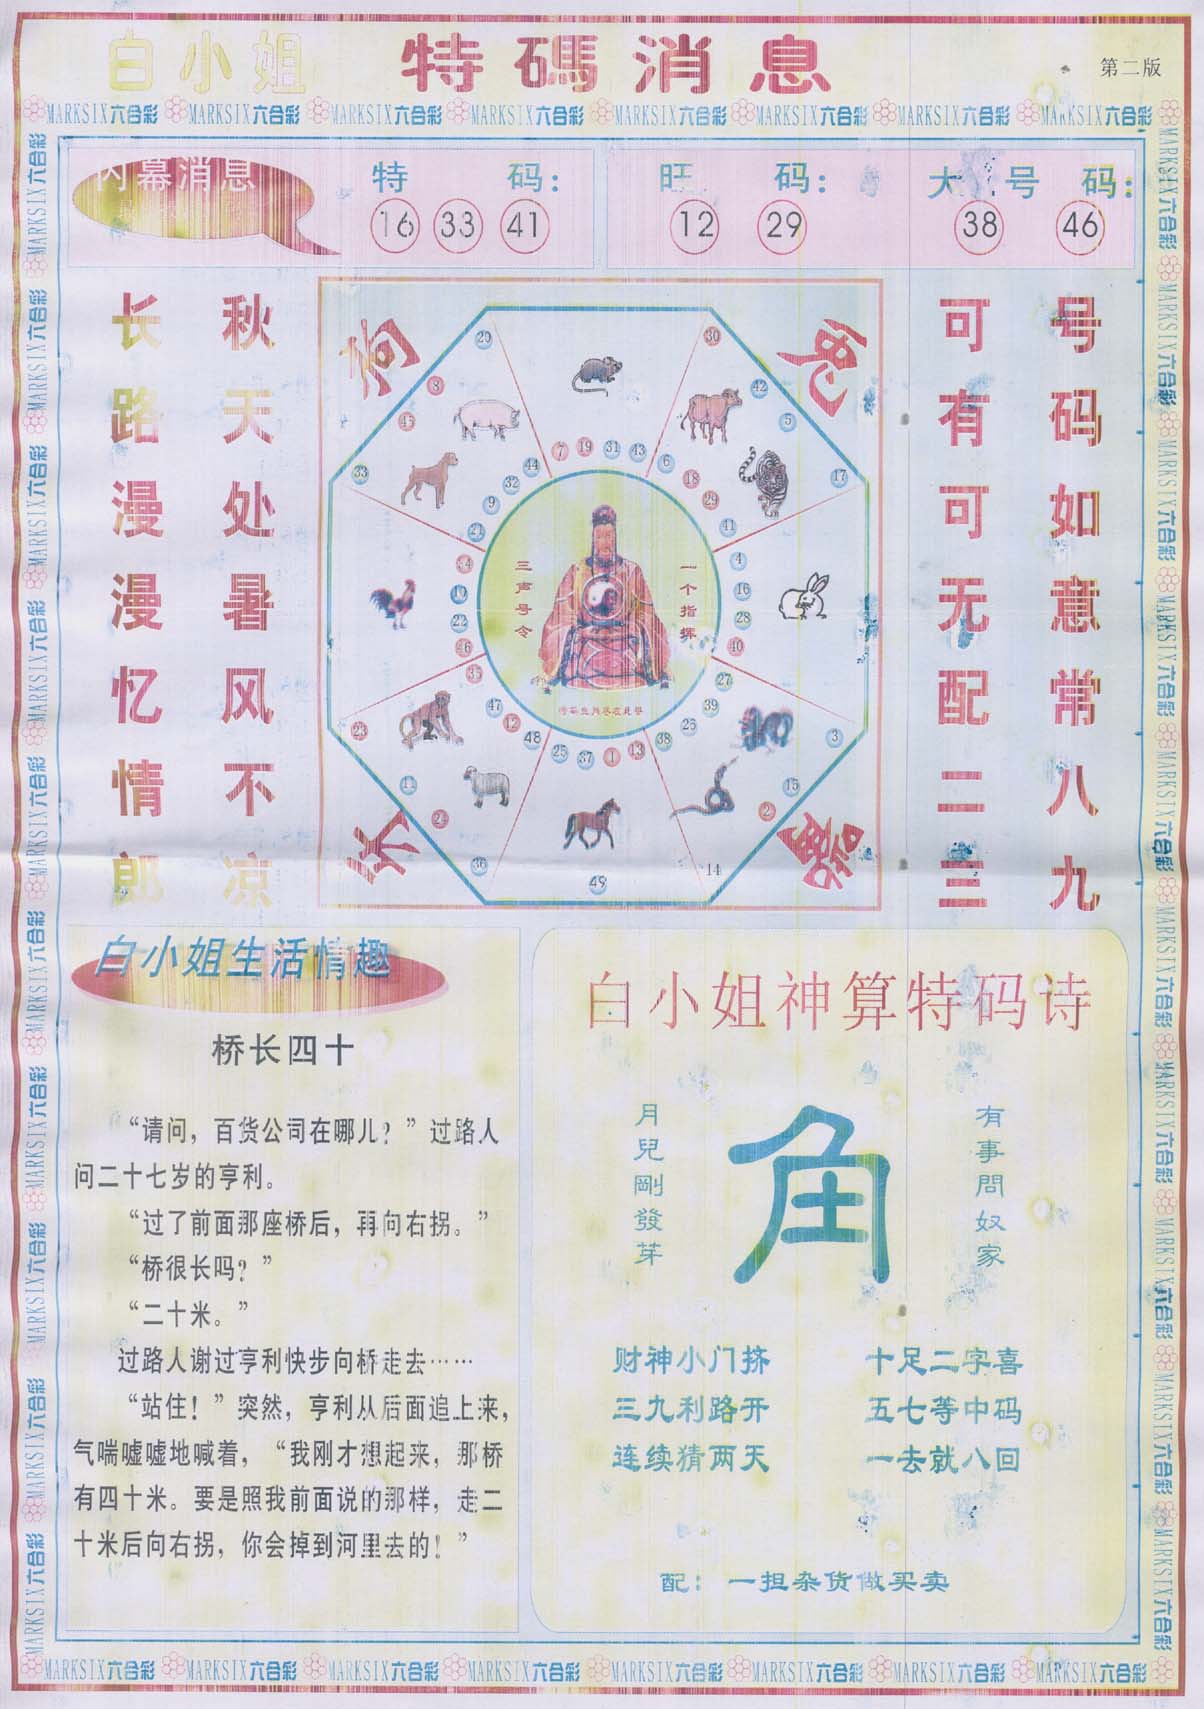 白小姐 特碼消息 第二版
MARKSIX六合彩 MARKSIX六合彩 MARKSIX六合彩 MARKSIX六合彩 MARKSIX六合彩 MARKSIX六合彩 MARKSIX六合彩 MARKSIX六合彩
内幕消息
特 码:
16 33 41
旺 码:
12 29
大 号 码:
38 46
长路漫漫忆情郎
秋天处暑风不凉
可有可无配二三
号码如意常八九
20 30
8 42
45 5
33 17
44 7 19 31 43 6
32 18
9 29
21 41
4
10 16
22 28
46 40
35 27
47 39
12 26
48 25 37 1 13 38
23 3
11 15
24 2
36 49 14
三声号令
一个指挥
白小姐生活情趣
桥长四十
“请问，百货公司在哪儿？”过路人
问二十七岁的亨利。
“过了前面那座桥后，再向右拐。”
“桥很长吗？”
“二十米。”
过路人谢过亨利快步向桥走去……
“站住！”突然，亨利从后面追上来，
气喘嘘嘘地喊着，“我刚才想起来，那桥
有四十米。要是照我前面说的那样，走二
十米后向右拐，你会掉到河里去的！”
白小姐神算特码诗
月兒剛發芽
角
有事問奴家
财神小门挤 十足二字喜
三九利路开 五七等中码
连续猜两天 一去就八回
配：一担杂货做买卖
MARKSIX六合彩 MARKSIX六合彩 MARKSIX六合彩 MARKSIX六合彩 MARKSIX六合彩 MARKSIX六合彩 MARKSIX六合彩 MARKSIX六合彩